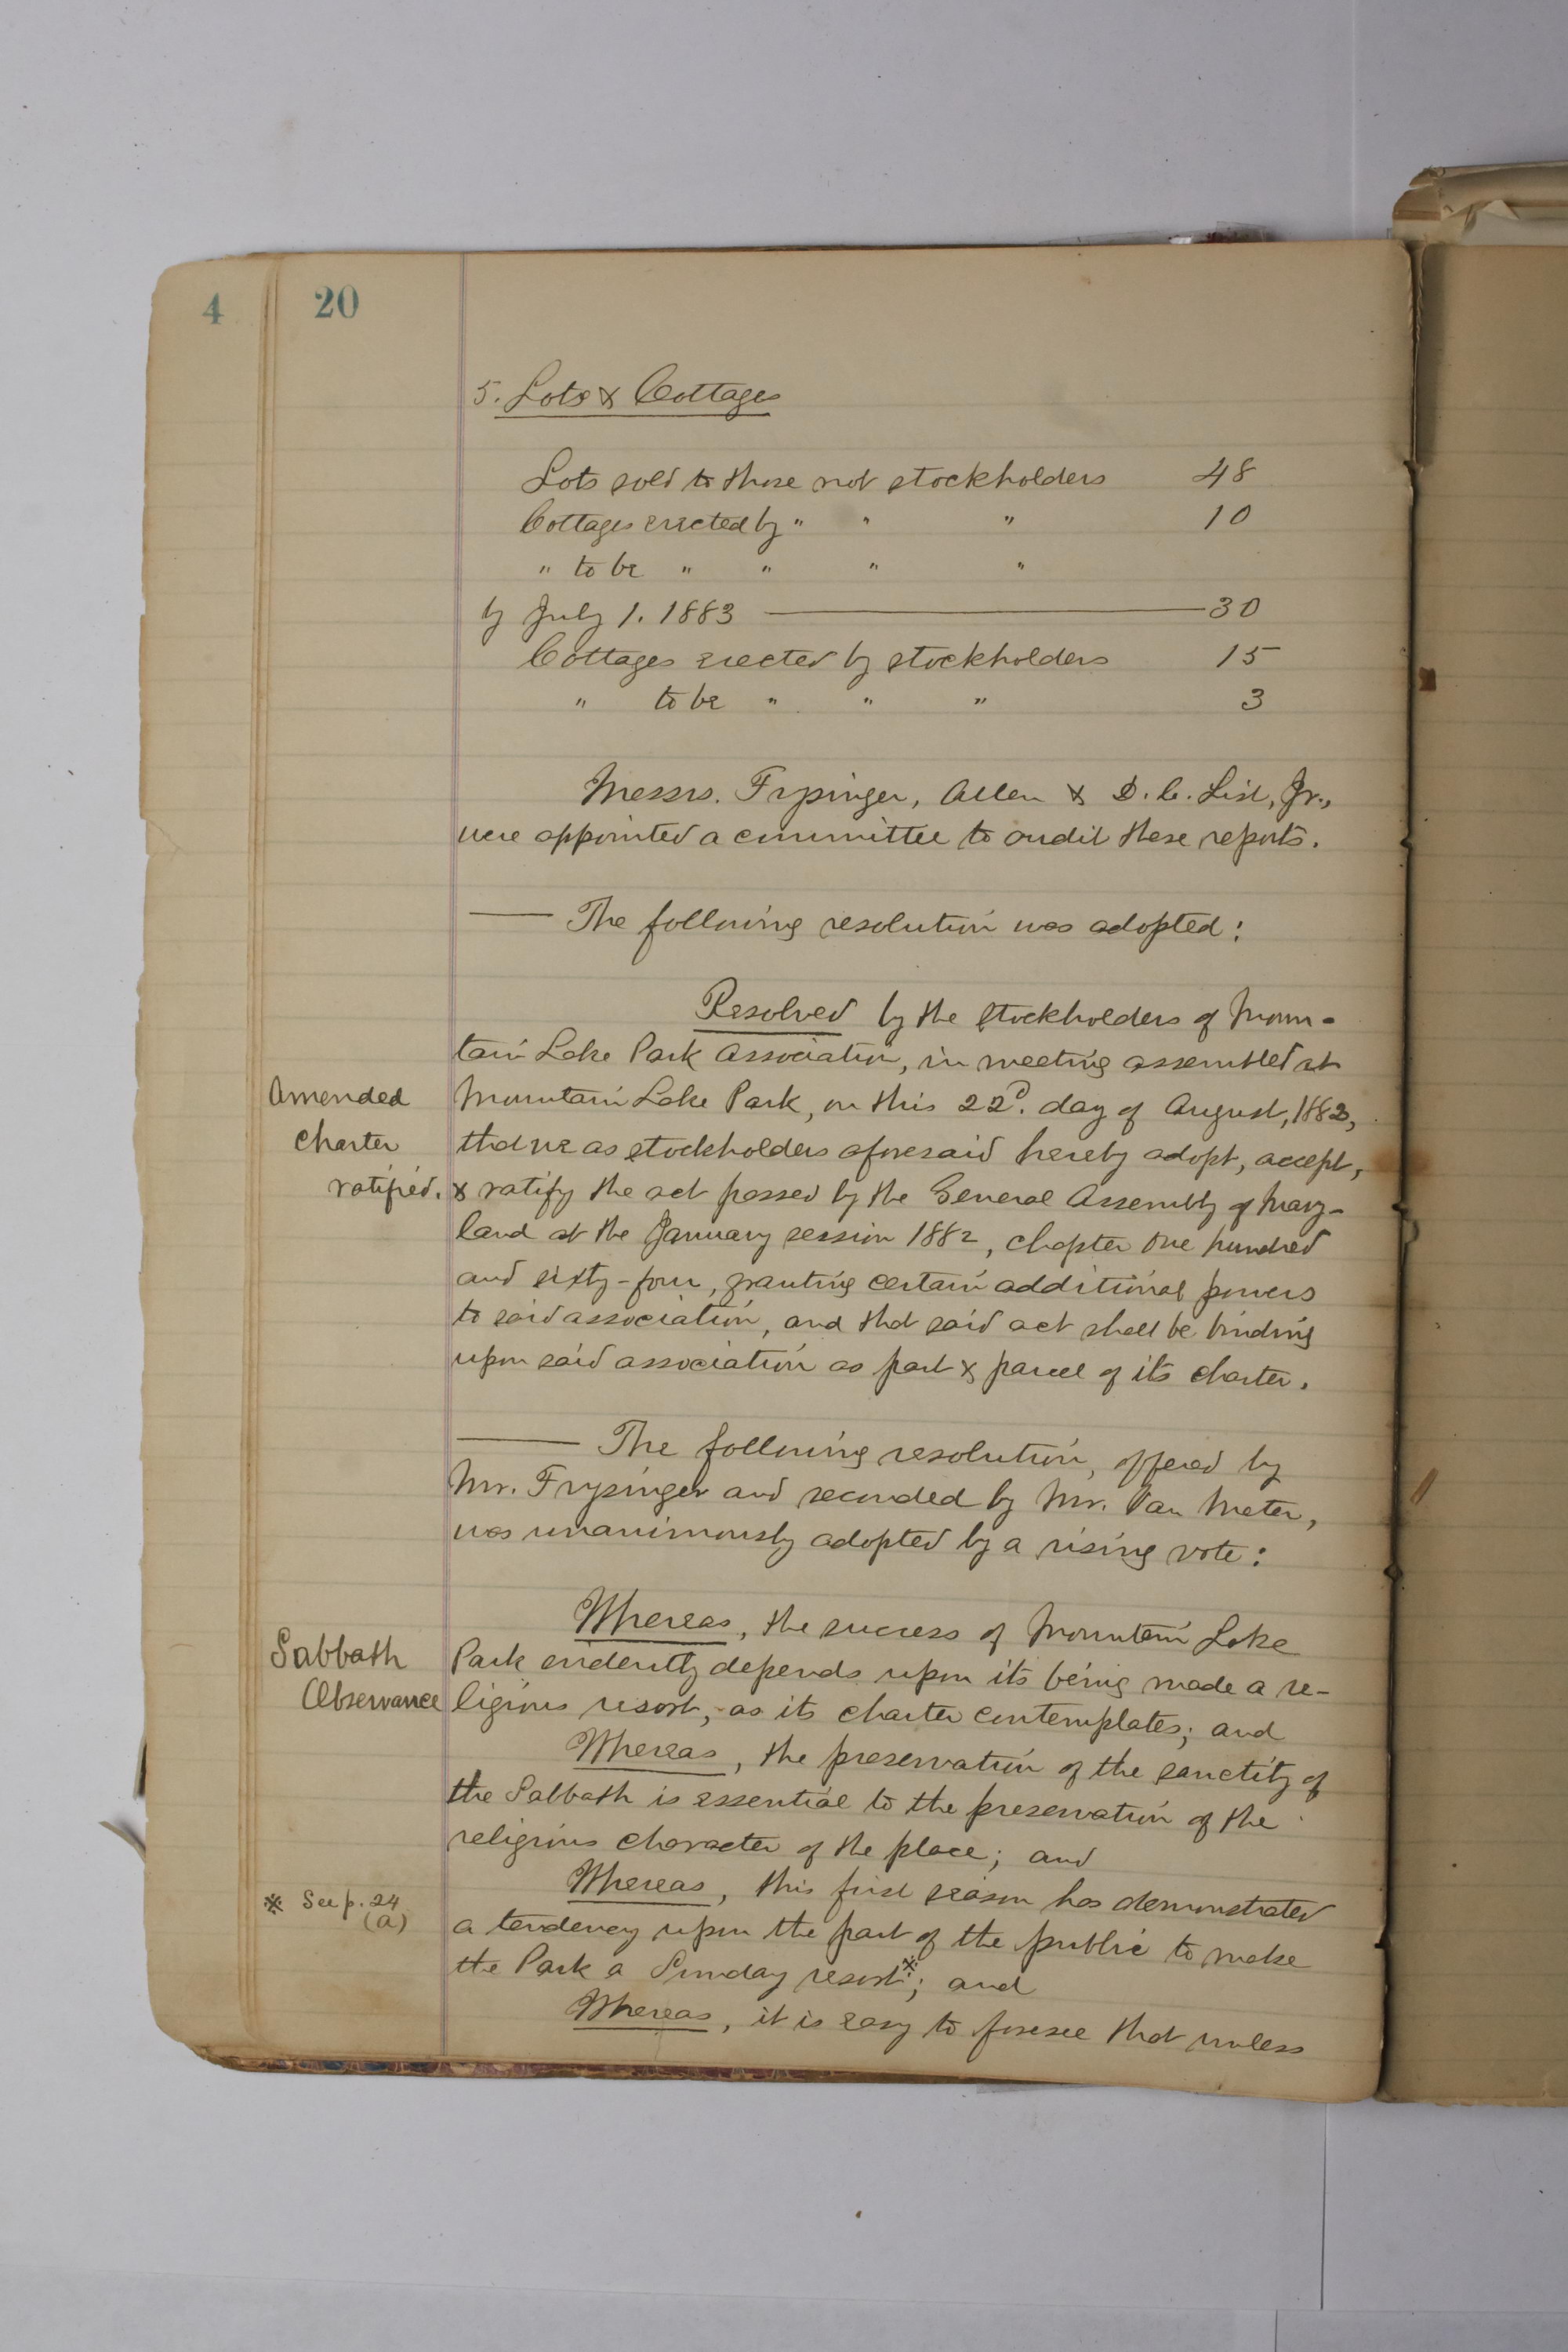 4 20
5. Lots & Cottages
Lots sold to those not stockholders 48
Cottages erected by " " " 10
" to be " " " "
by July 1. 1883 — 30
Cottages erected by stockholders 15
" to be " " " 3
Messrs. Frysinger, Allen & D. C. List, Jr.,
were appointed a committee to audit these reports.
— The following resolution was adopted:
Resolved by the stockholders of Moun-
tain Lake Park Association, in meeting assembled at
Amended Mountain Lake Park, on this 22d. day of August, 1882,
charter that we as stockholders aforesaid hereby adopt, accept,
ratified. & ratify the act passed by the General Assembly of Mary-
land at the January session 1882, chapter one hundred
and sixty-four, granting certain additional powers
to said association, and that said act shall be binding
upon said association as part & parcel of its charter.
— The following resolution, offered by
Mr. Frysinger and seconded by Mr. Van Meter,
was unanimously adopted by a rising vote:
Whereas, the success of Mountain Lake
Sabbath Park evidently depends upon its being made a re-
Observance ligious resort, as its charter contemplates; and
Whereas, the preservation of the sanctity of
the Sabbath is essential to the preservation of the
religious character of the place; and
Whereas, this first season has demonstrated
※ See p. 24 (a) a tendency upon the part of the public to make
the Park a Sunday resort※; and
Whereas, it is easy to foresee that unless